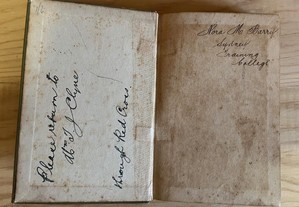 Please return to
Mrs T J Clyne
through Red Cross.
Nora M Barry
Sydney
Training
College